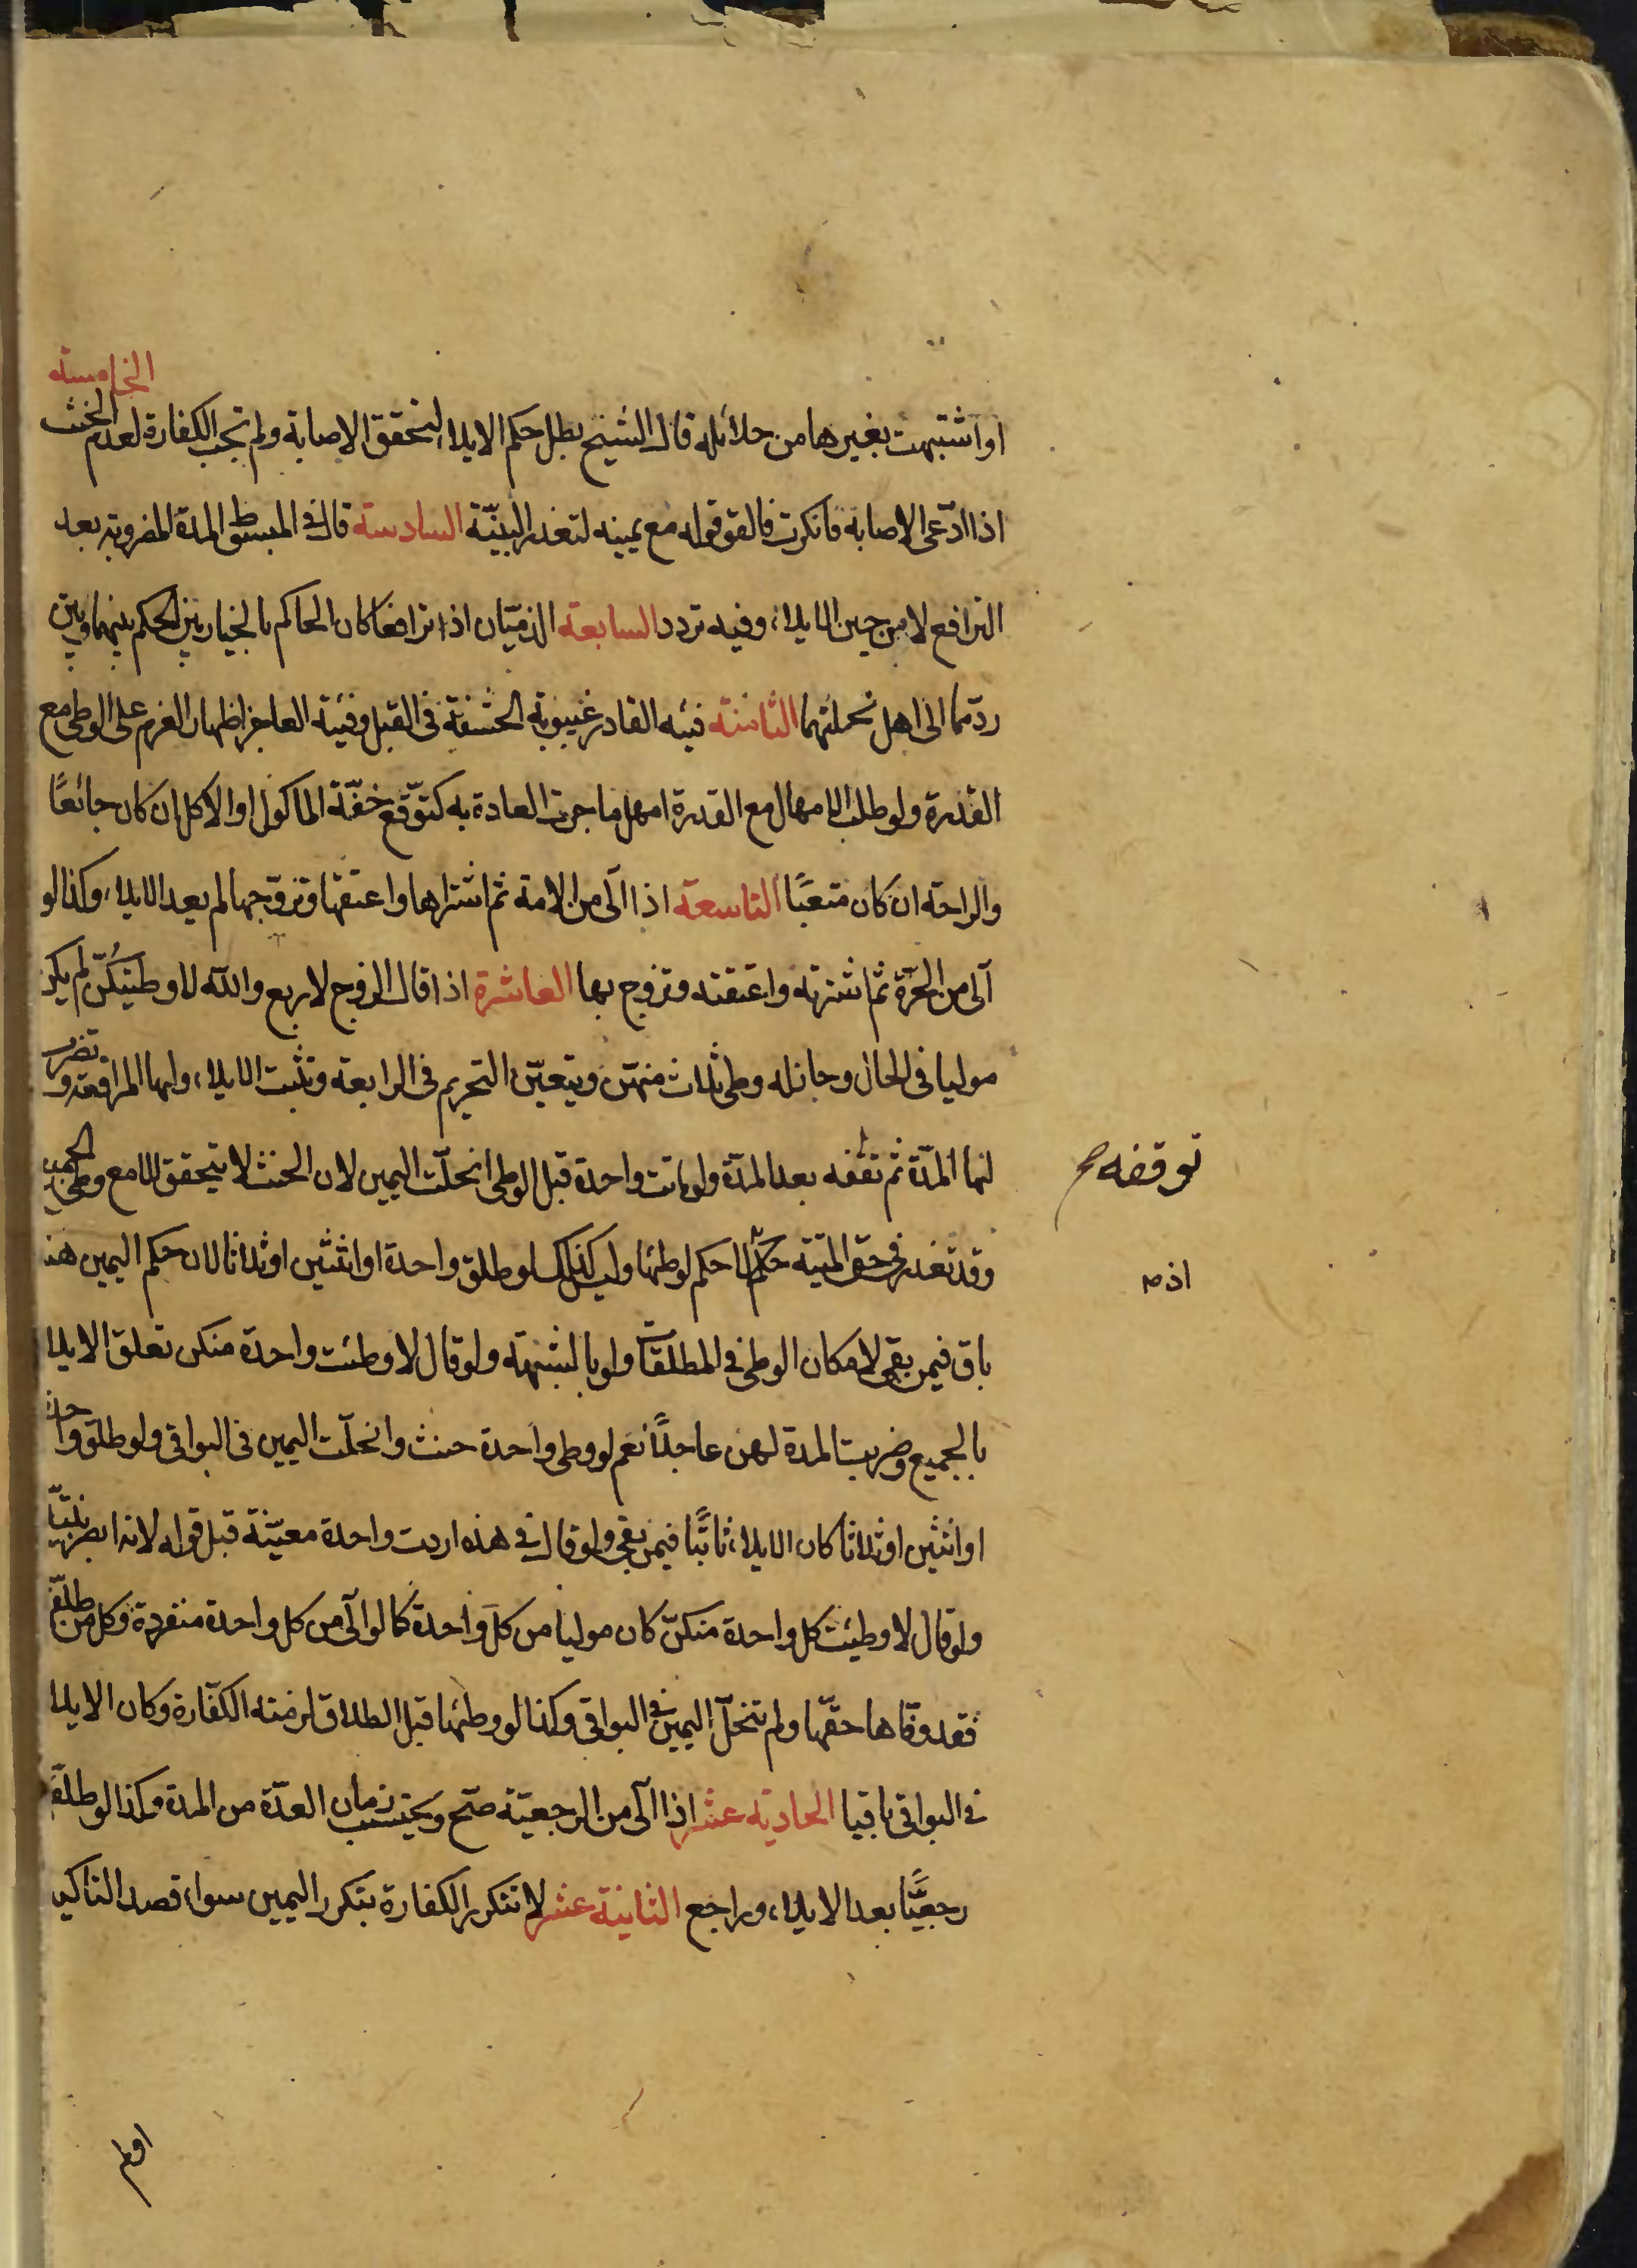 او اشتبهت بغيرها من حلائله قال الشيخ بطل حكم الايلاء لتحقق الاصابة ولم تجب الكفارة لعدم الحنث الخامسة
اذا ادّعى الاصابة فانكرت فالقول قوله مع يمينه لتعذر البيّنة السادسة قال في المبسوط المدة المضروبة بعد
الترافع لا من حين الايلاء وفيه تردد السابعة الذميّان اذا ترافعا كان الحاكم بالخيار بين الحكم بينهما وبين
ردّهما الى اهل نحلتهما الثامنة فيئه القادر غيبوبة الحشفة في القبل وفيئة العاجز اظهار العزم على الوطى مع
القدرة ولو طلب الامهال مع القدرة امهل ما جرت العادة به كتوقّع خفّة الماكول او الاكل ان كان جائعًا
والراحة ان كان متعبًا التاسعة اذا آلى من الامة ثم اشتراها واعتقها وتزوّجها لم يعد الايلاء وكذا لو
آلى من الحرّة ثم اشترته واعتقته وتزوج بها العاشرة اذا قال الزوج لاربع والله لا وطيتكنّ لم يكن
موليا في الحال وجاز له وطى ثلاث منهنّ ويتعيّن التحريم في الرابعة ويثبت الايلاء ولها المرافعة وتضرب
لها المدّة ثم تقفه بعد المدّة ولو ماتت واحدة قبل الوطى انحلّت اليمين لان الحنث لا يتحقق الا مع وطى الجميع
توقفه صح
وقد تعذر في حق الميّتة حكم لا حكم لوطئها وليس كذلك لو طلق واحدة او اثنتين او ثلاثا لان حكم اليمين هنا
اذ صح
باق فيمن بقى لامكان الوطى في المطلقات ولو بالشبهة ولو قال لا وطئت واحدة منكن تعلق الايلاء
بالجميع وضربت المدة لهن عاجلًا نعم لو وطى واحدة حنث وانحلّت اليمين في البواقى ولو طلق واحدة
او اثنتين او ثلاثا كان الايلاء ثابتًا فيمن بقى ولو قال في هذه اردت واحدة معيّنة قبل قوله لانه ابصر بنيّته
ولو قال لا وطيئت كل واحدة منكنّ كان موليا من كلّ واحدة كما لو آلى من كل واحدة منفردة وكل من طلّق
فقد وفّاها حقّها ولم تنحلّ اليمين في البواقى وكذا لو وطئها قبل الطلاق لزمته الكفّارة وكان الايلاء
في البواقى باقيا الحادية عشر اذا آلى من الرجعيّة صحّ ويحتسب زمان العدّة من المدة وكذا لو طلّق
رجعيًّا بعد الايلاء وراجع الثانية عشر لا تتكرر الكفارة بتكرر اليمين سواء قصد التاكيد
اولم